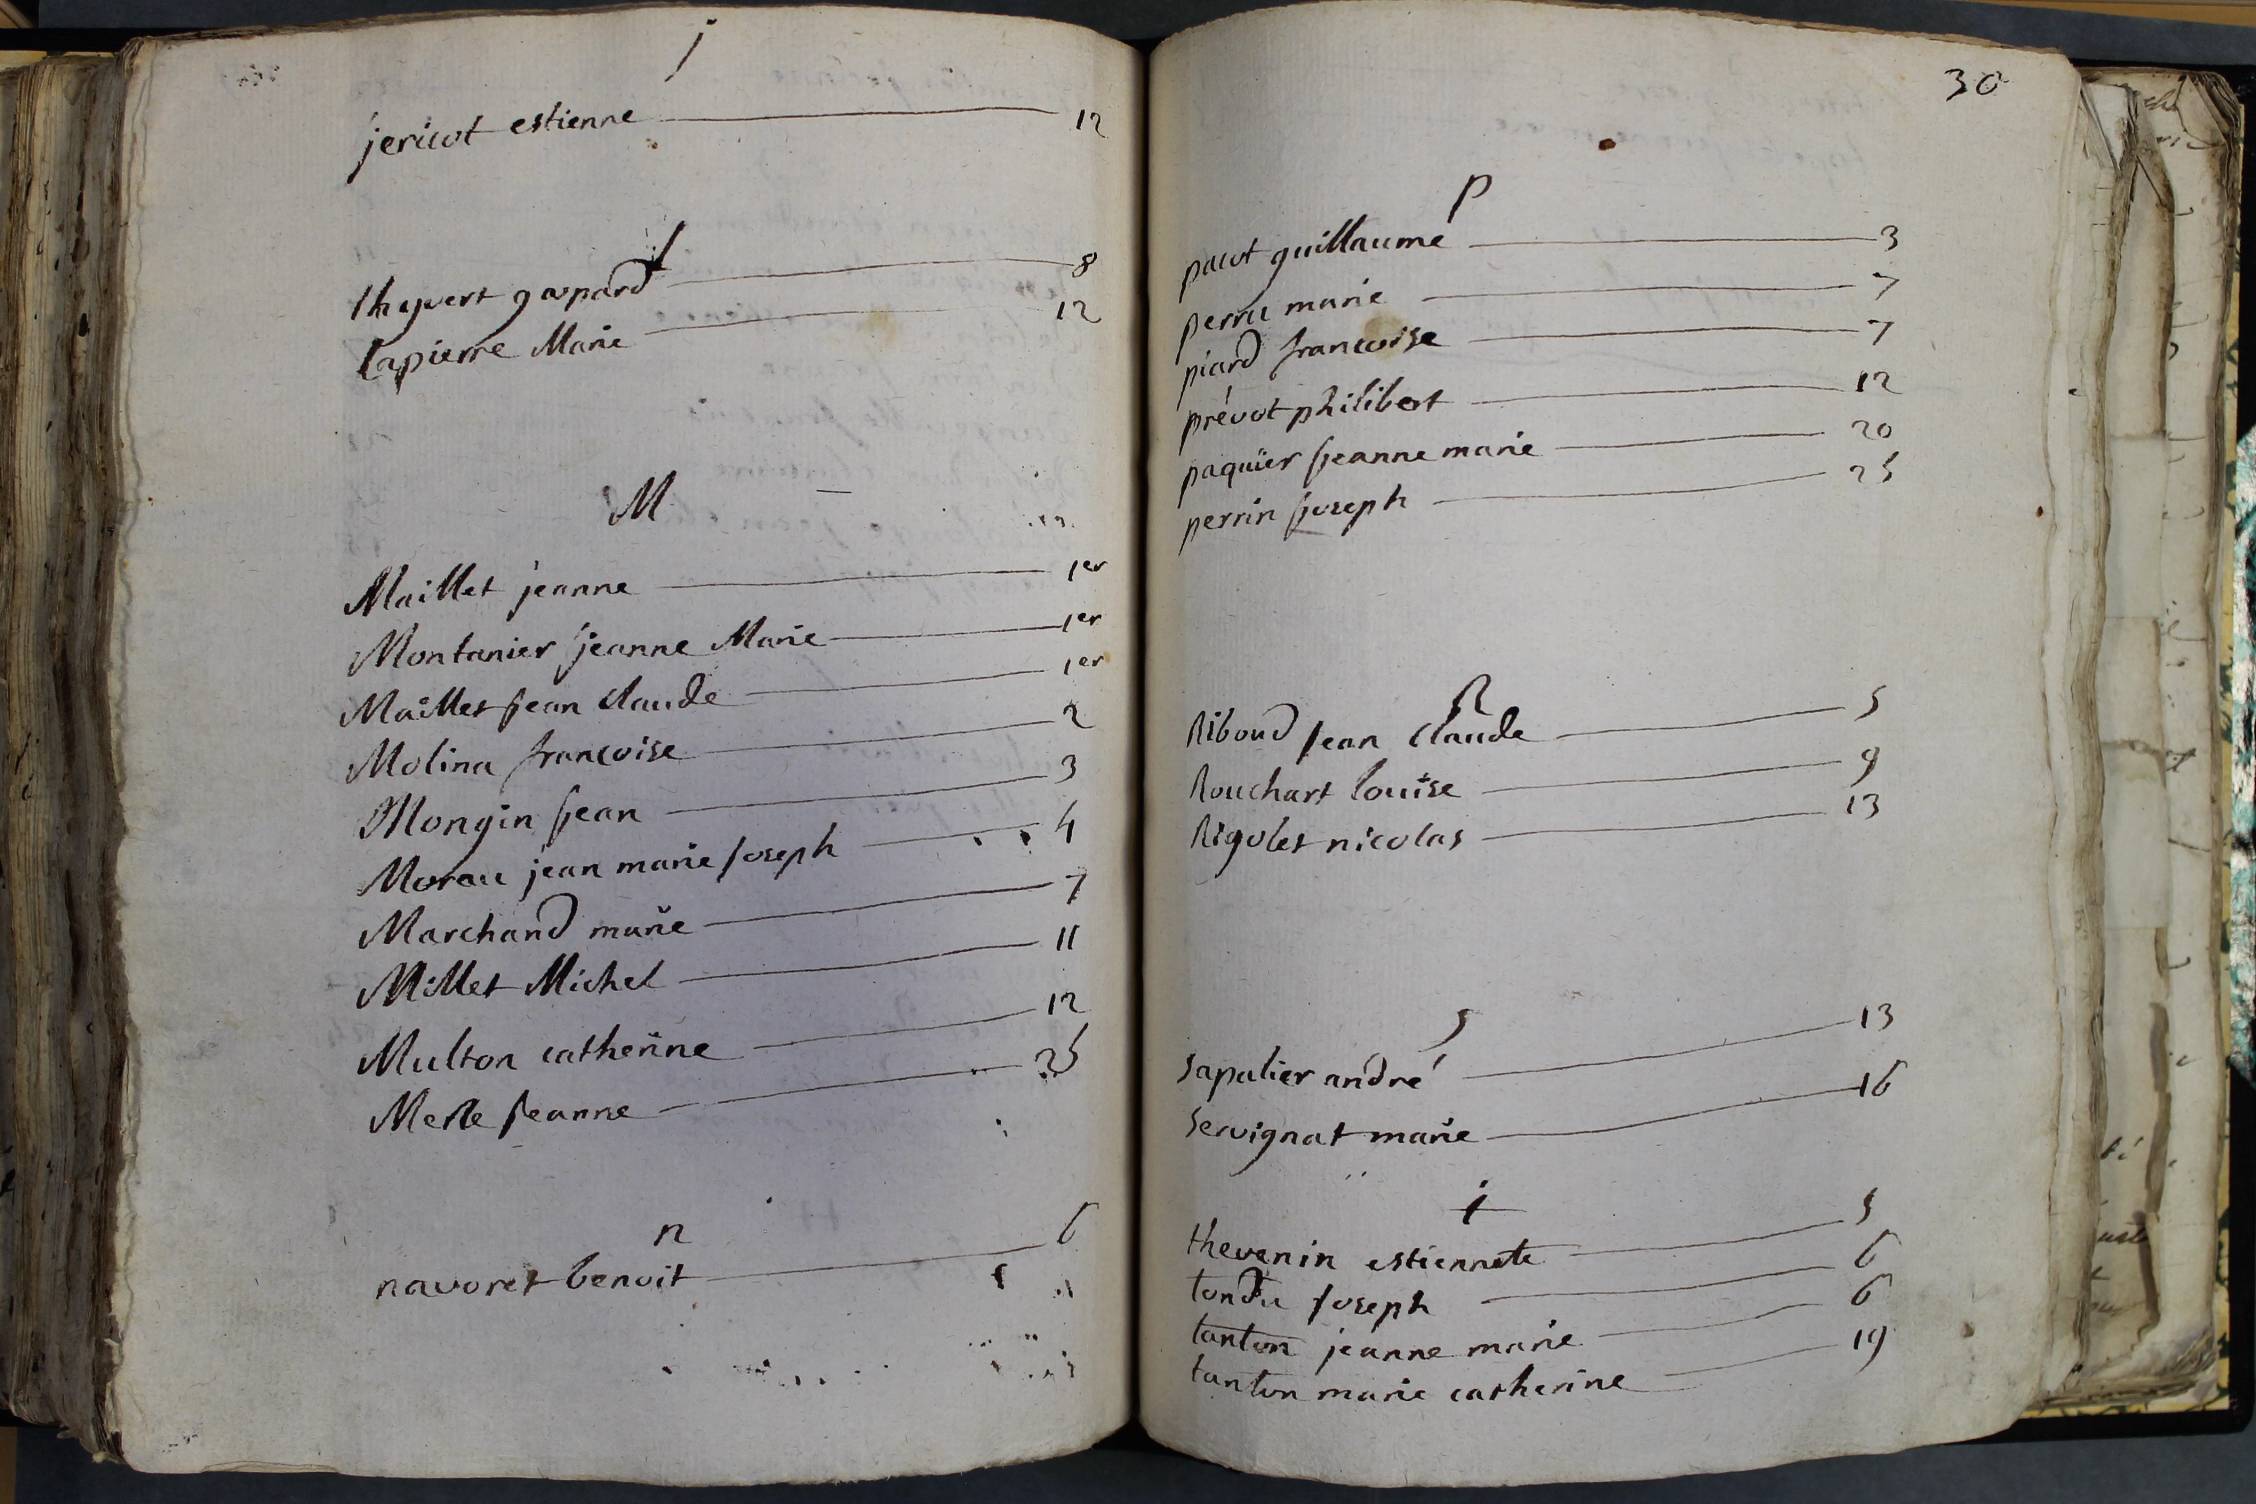 j
jericot estienne 12
l
lhyvert gaspard 8
lapierre Marie 12
M
Maillet jeanne 1er
Montanier jeanne Marie 1er
Maillet jean claude 1er
Molina francoise 2
Mongin jean 3
Morau jean marie joseph 4
Marchand marie 7
Millet Michel 11
Multon catherine 12
Merle jeanne 25
n
navoret benoit 6
30
p
pacot guillaume 3
perru marie 7
piard francoise 7
prévot philibert 12
paquier jeanne marie 20
perrin joseph 25
R
Riboud jean claude 5
Rouchart louise 9
Rigolet nicolas 13
s
sapalier andré 13
servignat marie 16
t
thevenin estiennete 5
tondu joseph 6
tanton jeanne marie 6
tanton marie catherine 19